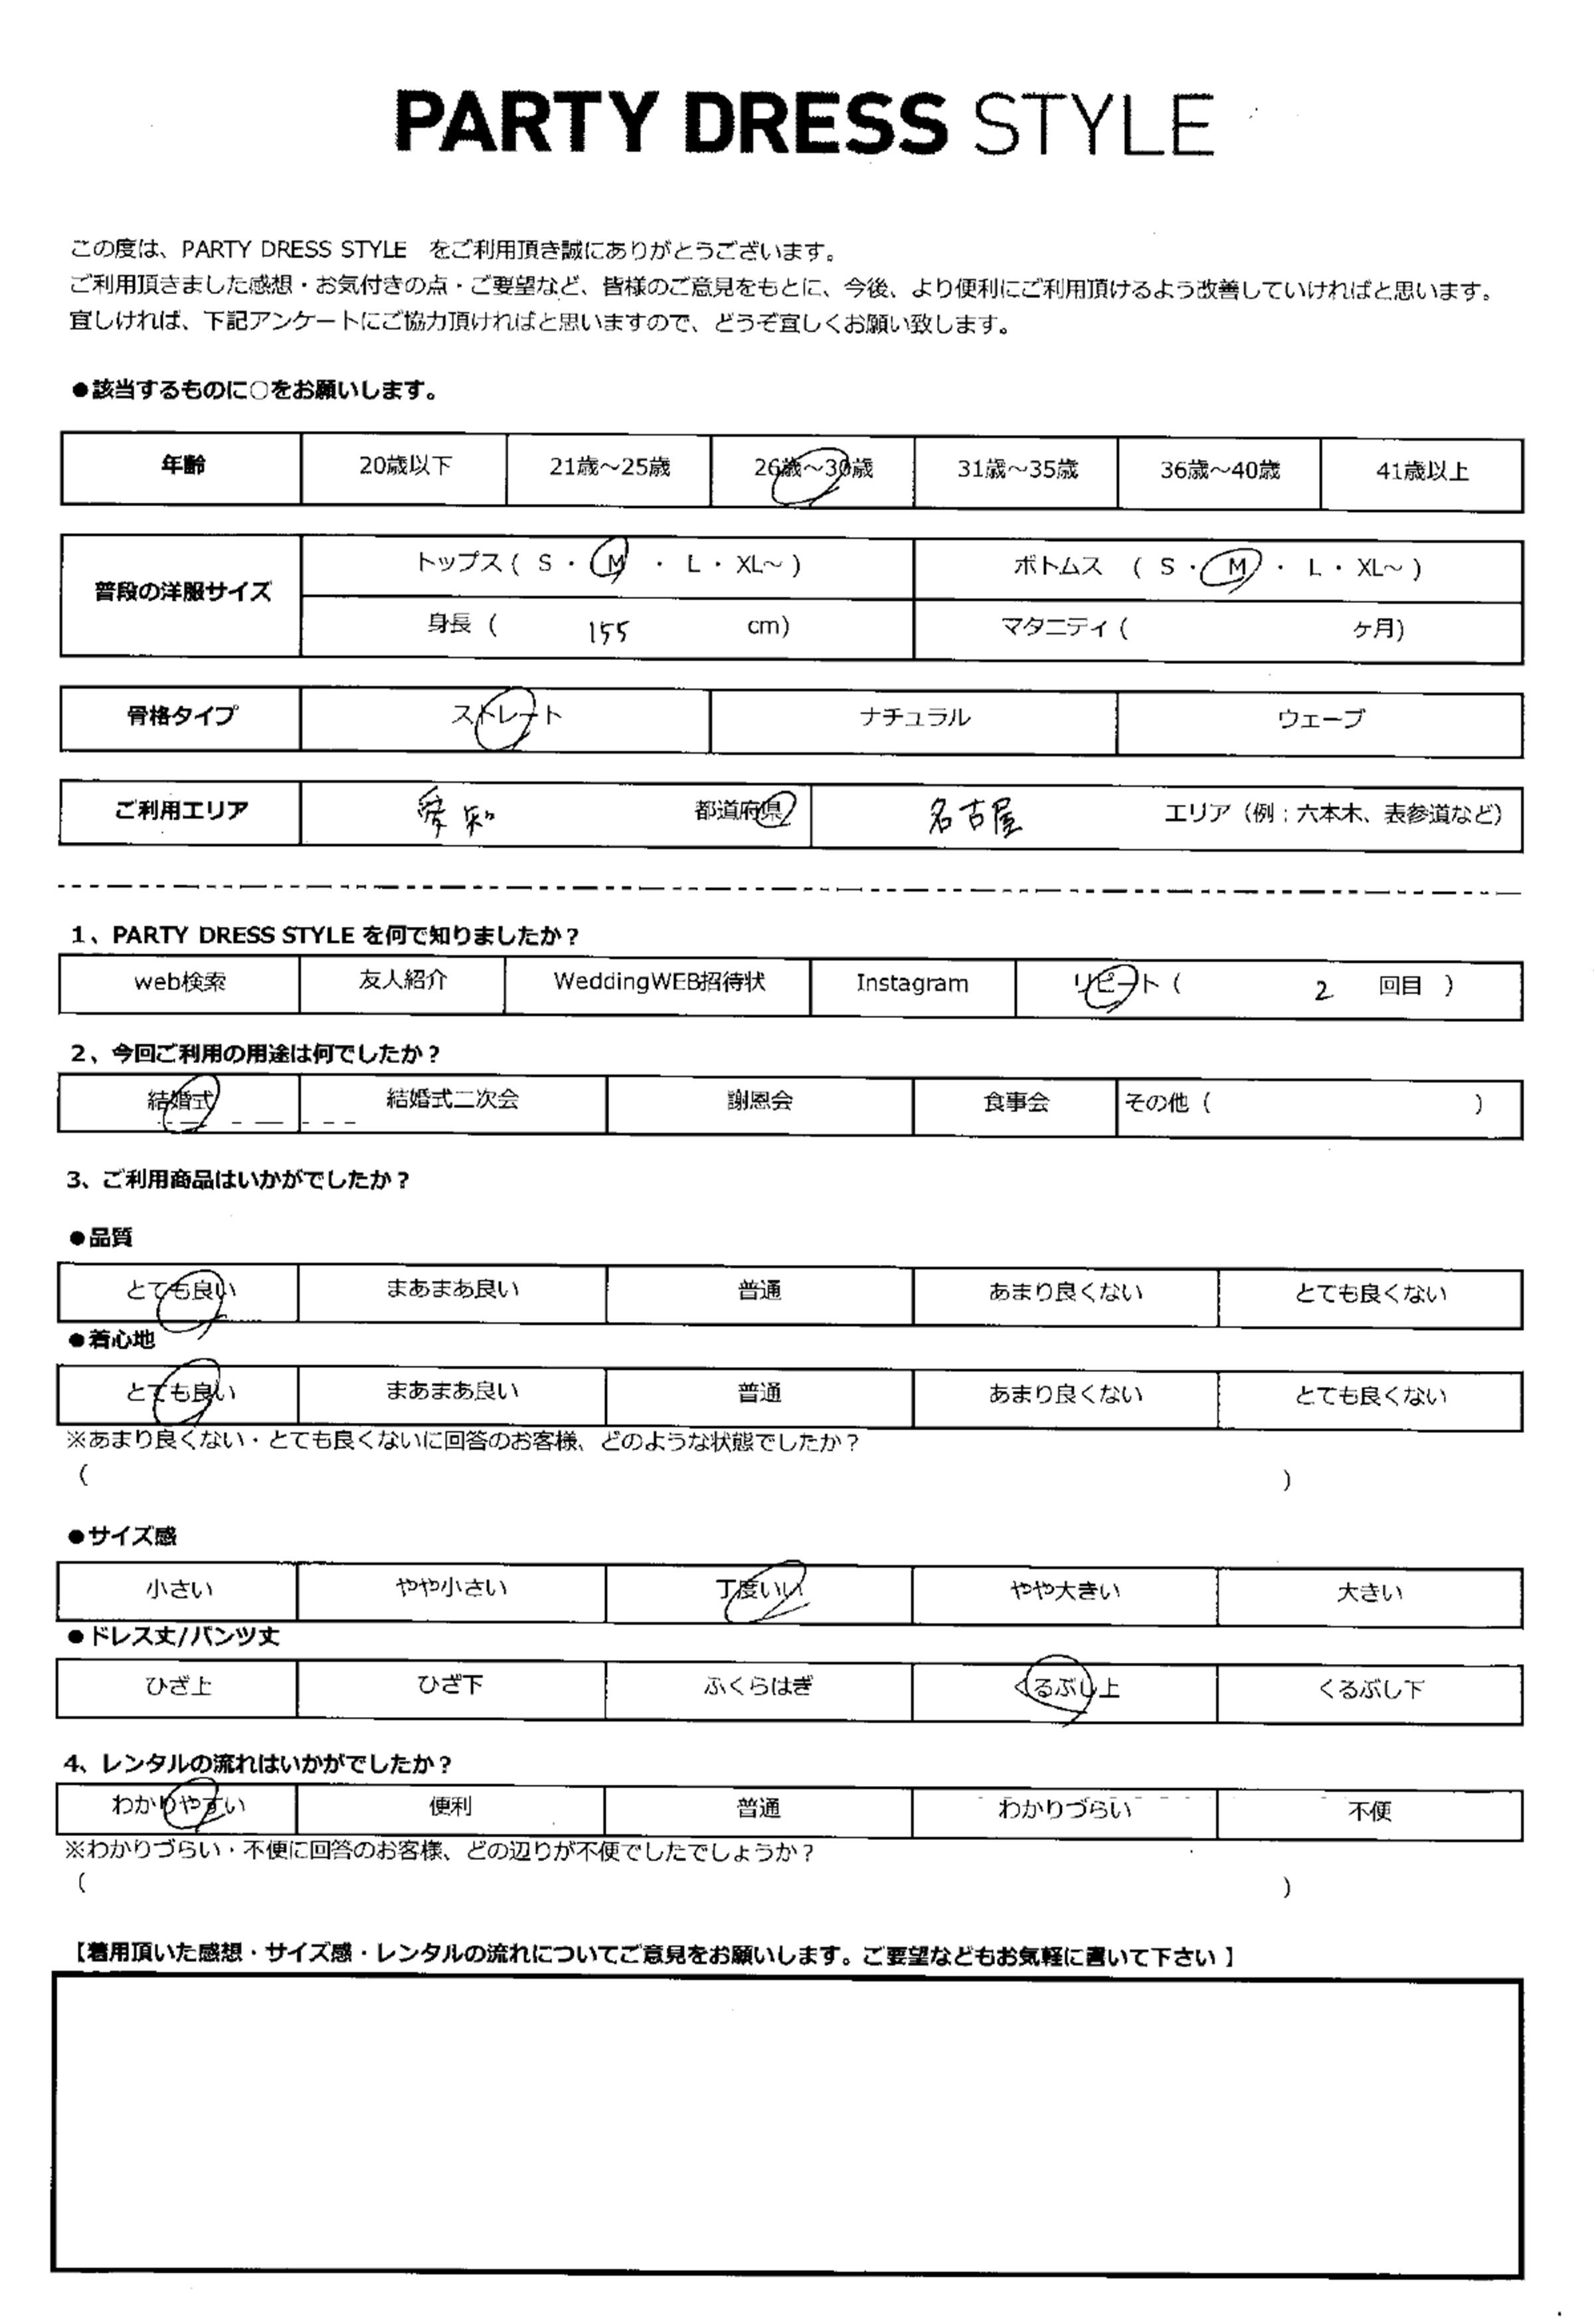 PARTY DRESS STYLE
この度は、PARTY DRESS STYLE をご利用頂き誠にありがとうございます。
ご利用頂きました感想・お気付きの点・ご要望など、皆様のご意見をもとに、今後、より便利にご利用頂けるよう改善していければと思います。
宜しければ、下記アンケートにご協力頂ければと思いますので、どうぞ宜しくお願い致します。
●該当するものに○をお願いします。
年齢 20歳以下 21歳～25歳 26歳～30歳 31歳～35歳 36歳～40歳 41歳以上
普段の洋服サイズ トップス ( S ・ M ・ L ・ XL～ ) ボトムス ( S ・ M ・ L ・ XL～ )
身長 ( 155 cm) マタニティ ( ヶ月)
骨格タイプ ストレート ナチュラル ウェーブ
ご利用エリア 愛知 都道府県 名古屋 エリア（例：六本木、表参道など）
1、PARTY DRESS STYLE を何で知りましたか？
web検索 友人紹介 WeddingWEB招待状 Instagram リピート ( 2 回目 )
2、今回ご利用の用途は何でしたか？
結婚式 結婚式二次会 謝恩会 食事会 その他 ( )
3、ご利用商品はいかがでしたか？
●品質
とても良い まあまあ良い 普通 あまり良くない とても良くない
●着心地
とても良い まあまあ良い 普通 あまり良くない とても良くない
※あまり良くない・とても良くないに回答のお客様、どのような状態でしたか？
( )
●サイズ感
小さい やや小さい 丁度いい やや大きい 大きい
●ドレス丈/パンツ丈
ひざ上 ひざ下 ふくらはぎ くるぶし上 くるぶし下
4、レンタルの流れはいかがでしたか？
わかりやすい 便利 普通 わかりづらい 不便
※わかりづらい・不便に回答のお客様、どの辺りが不便でしたでしょうか？
( )
【着用頂いた感想・サイズ感・レンタルの流れについてご意見をお願いします。ご要望などもお気軽に書いて下さい】